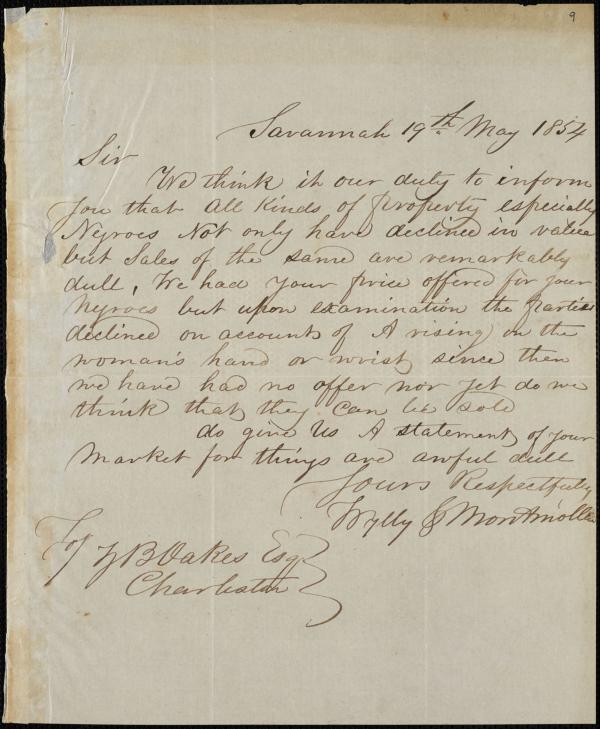 9
Savannah 19th May 1854
Sir
We think it our duty to inform
you that all kinds of property especially
Negroes Not only have declined in value
but Sales of the same are remarkably
dull, We had your price offered for your
Negroes but upon examination the parties
declined on account of A rising on the
woman's hand or wrist, since then
we have had no offer nor yet do we
think that they can be sold
do give us A statement of your
Market for things are awful dull
Yours Respectfully
Wylly & Montmollin
To Z B Oakes Esq
Charleston